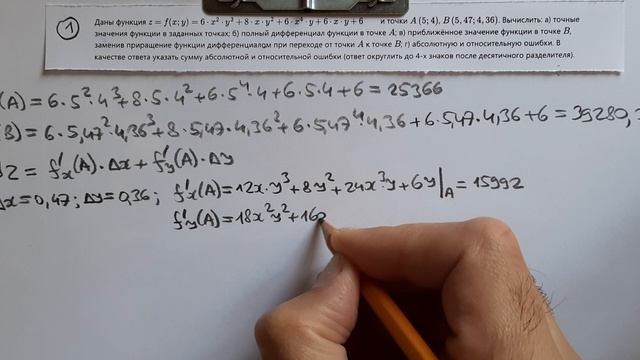 1 Даны функция z = f(x; y) = 6 · x² · y³ + 8 · x · y² + 6 · x⁴ · y + 6 · x · y + 6 и точки A (5; 4), B (5, 47; 4, 36). Вычислить: а) точные
значения функции в заданных точках; б) полный дифференциал функции в точке A; в) приближённое значение функции в точке B,
заменив приращение функции дифференциалом при переходе от точки A к точке B; г) абсолютную и относительную ошибки. В
качестве ответа указать сумму абсолютной и относительной ошибки (ответ округлить до 4-х знаков после десятичного разделителя).
(A) = 6·5²·4³+8·5·4²+6·5⁴·4+6·5·4+6 = 25366
(B) = 6·5,47²·4,36³+8·5,47·4,36²+6·5,47⁴·4,36+6·5,47·4,36+6 = 39280,
z = f'x(A)·Δx + f'y(A)·Δy
Δx=0,47; Δy=0,36; f'x(A)=12x·y³+8y²+24x³y+6y|A = 15992
f'y(A)=18x²y²+16